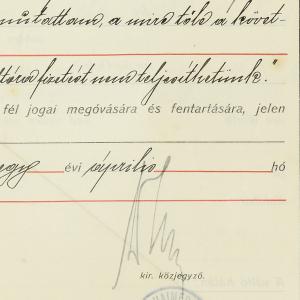 mutattam, a mire tőle a követ-
fizetést nem teljesíthetünk."
fél jogai megóvására és fentartására, jelen
egy évi április hó
kir. közjegyző.